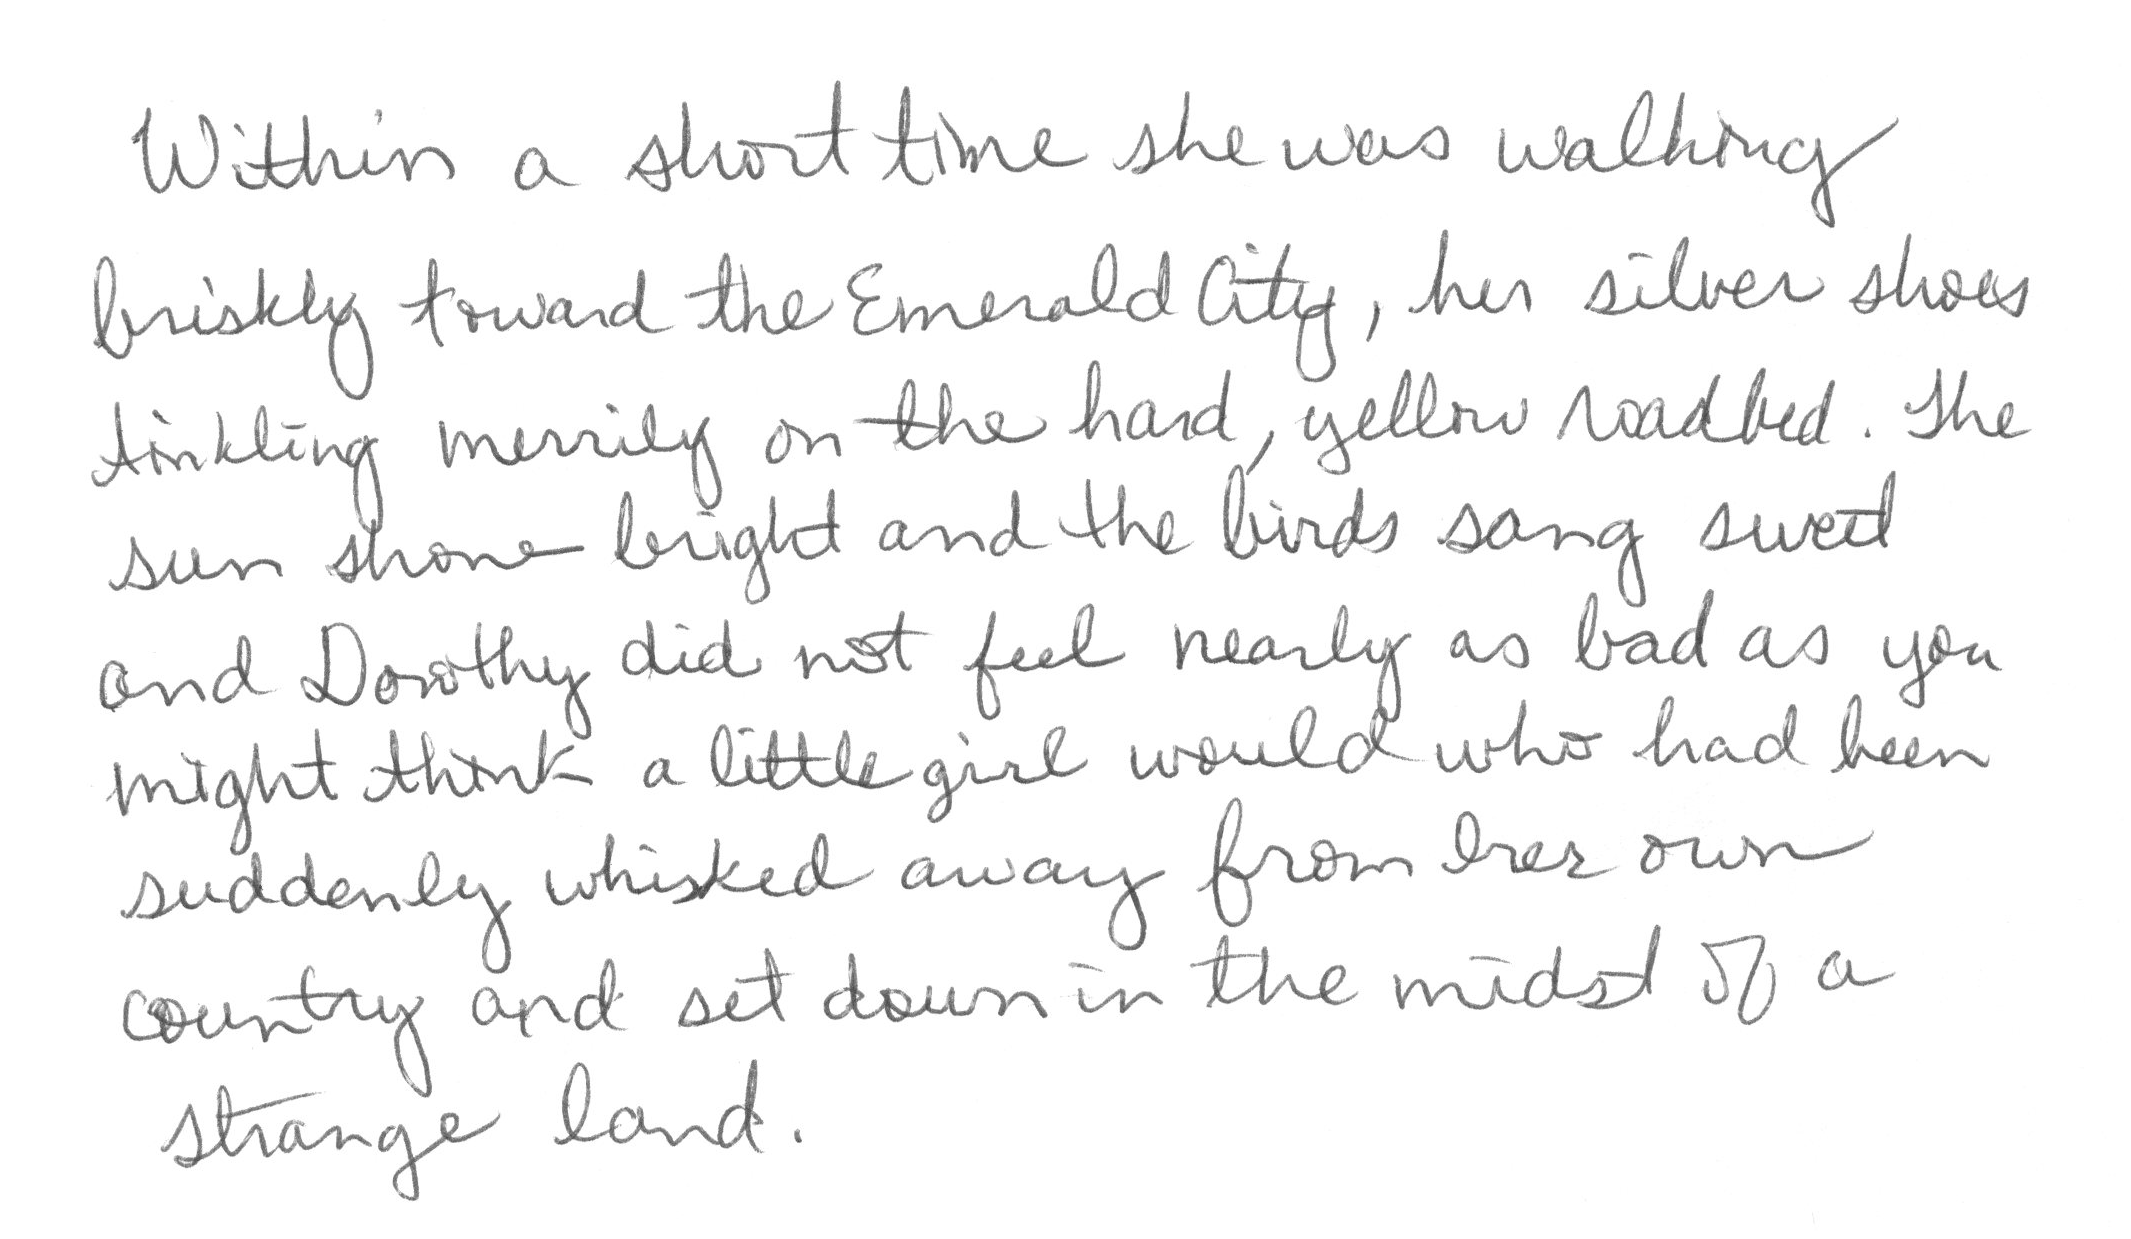 Within a short time she was walking
briskly toward the Emerald City, her silver shoes
tinkling merrily on the hard, yellow roadbed. The
sun shone bright and the birds sang sweet
and Dorothy did not feel nearly as bad as you
might think a little girl would who had been
suddenly whisked away from her own
country and set down in the midst of a
strange land.